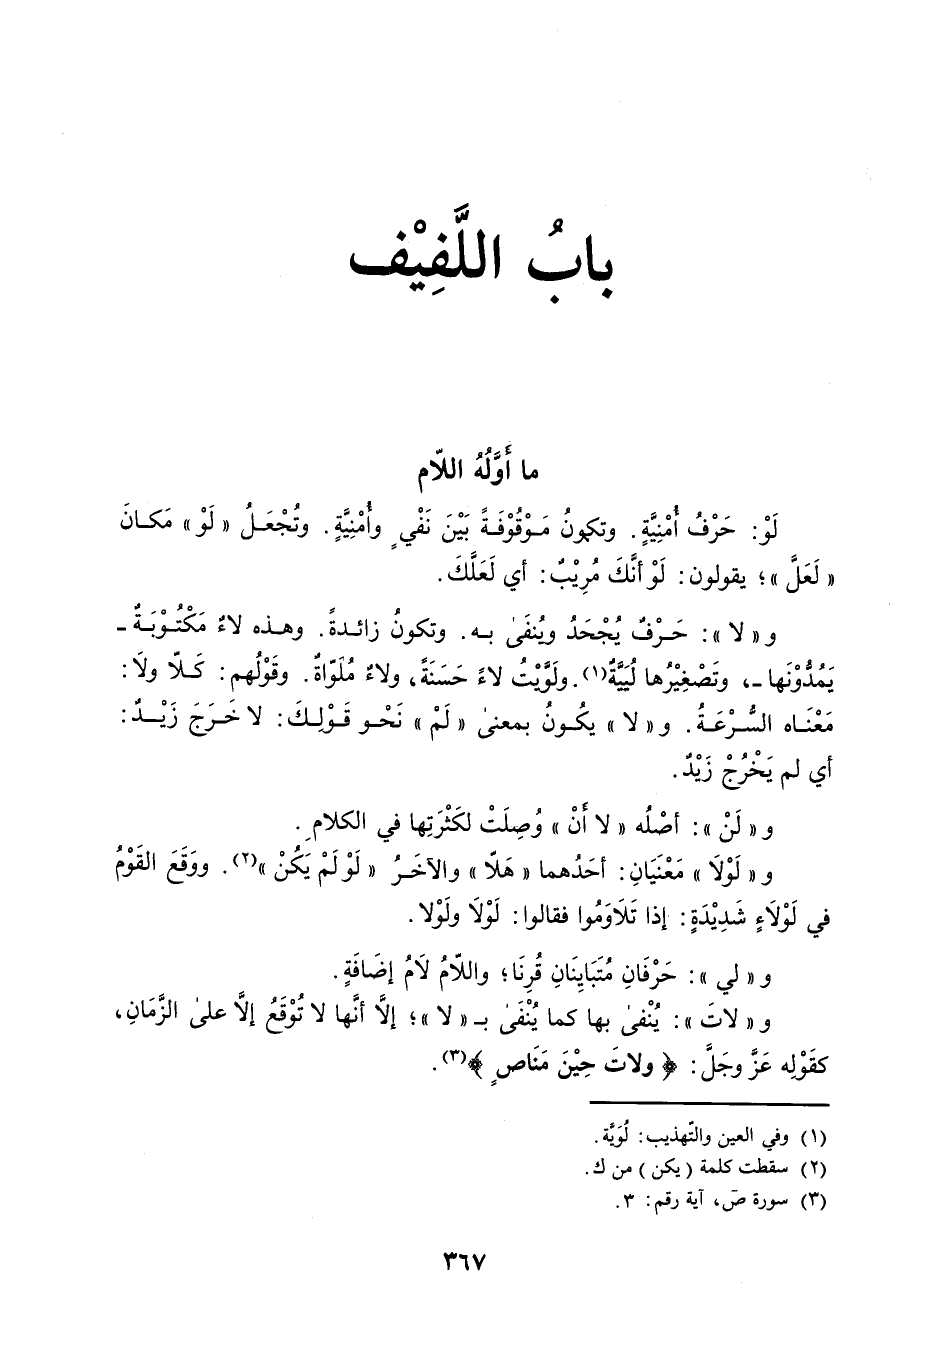 بابُ اللَّفِيْف
ما أَوَّلُهُ اللاّم
لَوْ: حَرْفُ أُمْنِيَّةٍ. وتكونُ مَوْقُوْفَةً بَيْنَ نَفْيٍ وأُمْنِيَّةٍ. وتُجْعَلُ « لَوْ » مَكانَ
« لَعَلَّ »؛ يقولون: لَوْ أنَّكَ مُرِيْبٌ: أي لَعَلَّكَ.
و « لا »: حَرْفٌ يُجْحَدُ ويُنْفَىٰ به. وتكونُ زائدةً. وهذه لاءٌ مَكْتُوْبَةٌ -
يَمُدُّوْنَها -، وتَصْغِيْرُها لُيَيَّةٌ(١). ولَوَّيْتُ لاءً حَسَنَةً، ولاءٌ مُلَوّاةٌ. وقَوْلُهم: كَلّا ولَا:
مَعْنَاه السُّرْعَةُ. و « لا » يكُونُ بمعنىٰ « لَمْ » نَحْو قَوْلِكَ: لا خَرَجَ زَيْدٌ:
أي لم يَخْرُجْ زَيْدٌ.
و « لَنْ »: أصْلُه « لا أنْ » وُصِلَتْ لكَثْرَتِها في الكلامِ.
و « لَوْلَا » مَعْنَيَانِ: أحَدُهما « هَلّا » والآخَرُ « لَوْ لَمْ يَكُنْ »(٢). ووَقَعَ القَوْمُ
في لَوْلَاءٍ شَدِيْدَةٍ: إذا تَلَاوَمُوا فقالوا: لَوْلَا ولَوْلا.
و « لي »: حَرْفَانِ مُتَبَايِنَانِ قُرِنَا؛ واللّامُ لَامُ إضَافَةٍ.
و « لاتَ »: يُنْفىٰ بها كما يُنْفَىٰ بـ « لا »؛ إلَّا أنَّها لا تُوْقَعُ إلَّا علىٰ الزَّمَانِ،
كقَوْلِه عَزَّ وجَلَّ: ﴿ ولاتَ حِيْنَ مَنَاصٍ ﴾(٣).
(١) وفي العين والتّهذيب: لُوَيَّة.
(٢) سقطت كلمة ( يكن ) من ك.
(٣) سورة صۤ، آية رقم: ٣.
٣٦٧